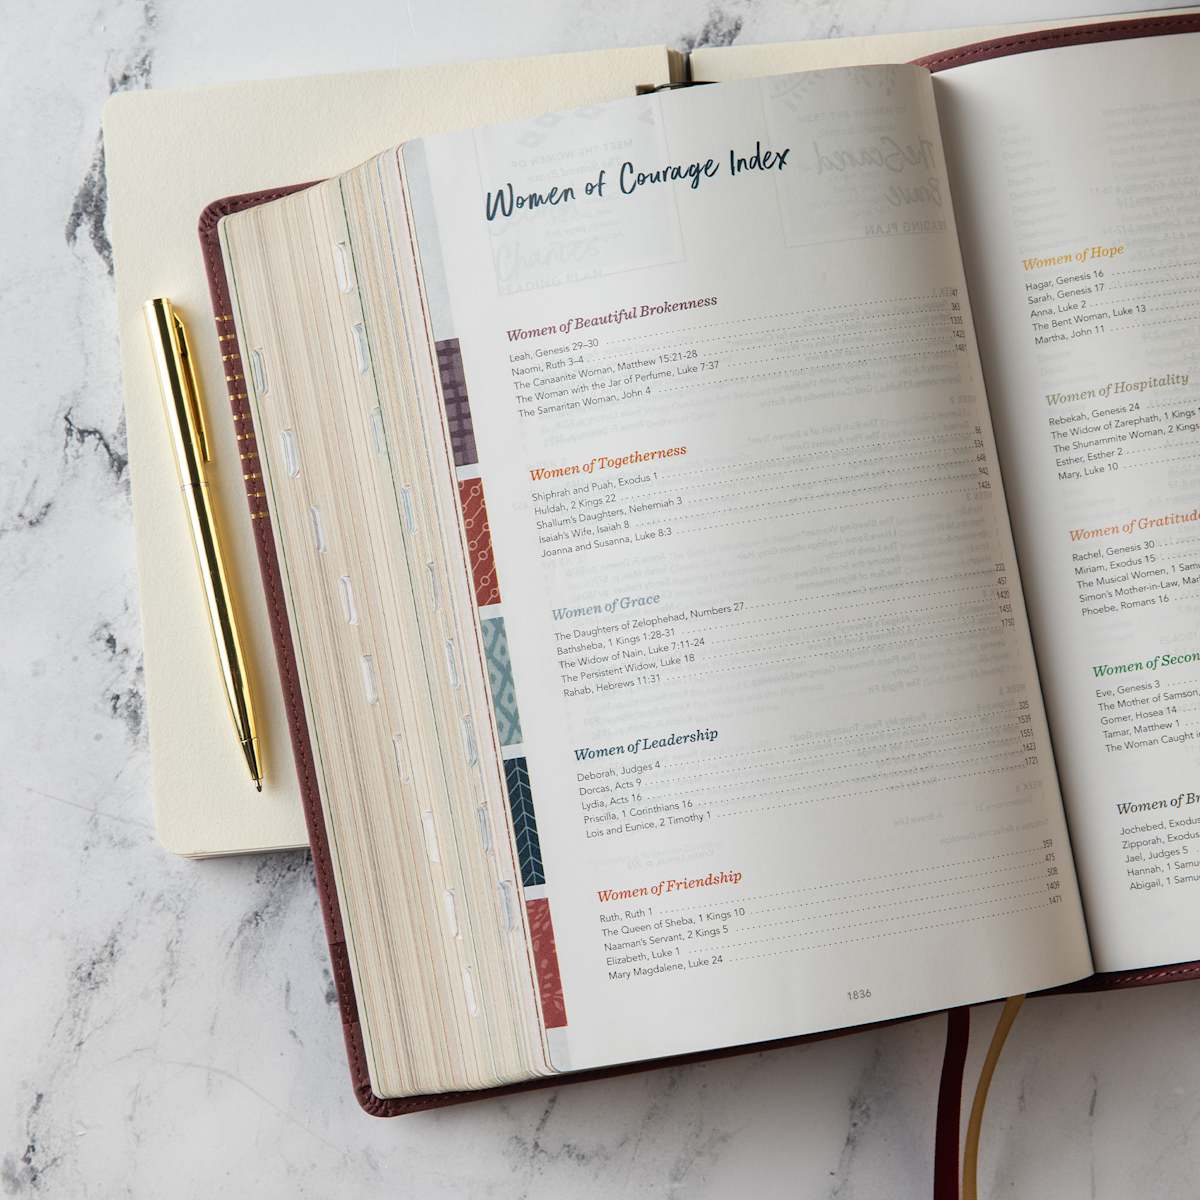 Women of Courage Index
Women of Beautiful Brokenness
Leah, Genesis 29–30 41
Naomi, Ruth 3–4 363
The Canaanite Woman, Matthew 15:21-28 1335
The Woman with the Jar of Perfume, Luke 7:37 1425
The Samaritan Woman, John 4 1481
Women of Togetherness
Shiphrah and Puah, Exodus 1 66
Huldah, 2 Kings 22 534
Shallum's Daughters, Nehemiah 3 648
Isaiah's Wife, Isaiah 8 942
Joanna and Susanna, Luke 8:3 1426
Women of Grace
The Daughters of Zelophehad, Numbers 27 222
Bathsheba, 1 Kings 1:28-31 457
The Widow of Nain, Luke 7:11-24 1420
The Persistent Widow, Luke 18 1455
Rahab, Hebrews 11:31 1750
Women of Leadership
Deborah, Judges 4 325
Dorcas, Acts 9 1539
Lydia, Acts 16 1551
Priscilla, 1 Corinthians 16 1623
Lois and Eunice, 2 Timothy 1 1721
Women of Friendship
Ruth, Ruth 1 359
The Queen of Sheba, 1 Kings 10 475
Naaman's Servant, 2 Kings 5 508
Elizabeth, Luke 1 1409
Mary Magdalene, Luke 24 1471
1836
Women of Hope
Hagar, Genesis 16
Sarah, Genesis 17
Anna, Luke 2
The Bent Woman, Luke 13
Martha, John 11
Women of Hospitality
Rebekah, Genesis 24
The Widow of Zarephath, 1 Kings
The Shunammite Woman, 2 Kings
Esther, Esther 2
Mary, Luke 10
Women of Gratitude
Rachel, Genesis 30
Miriam, Exodus 15
The Musical Women, 1 Sam
Simon's Mother-in-Law, Mar
Phoebe, Romans 16
Women of Secon
Eve, Genesis 3
The Mother of Samson,
Gomer, Hosea 14
Tamar, Matthew 1
The Woman Caught i
Women of Br
Jochebed, Exodus
Zipporah, Exodus
Jael, Judges 5
Hannah, 1 Samu
Abigail, 1 Samu